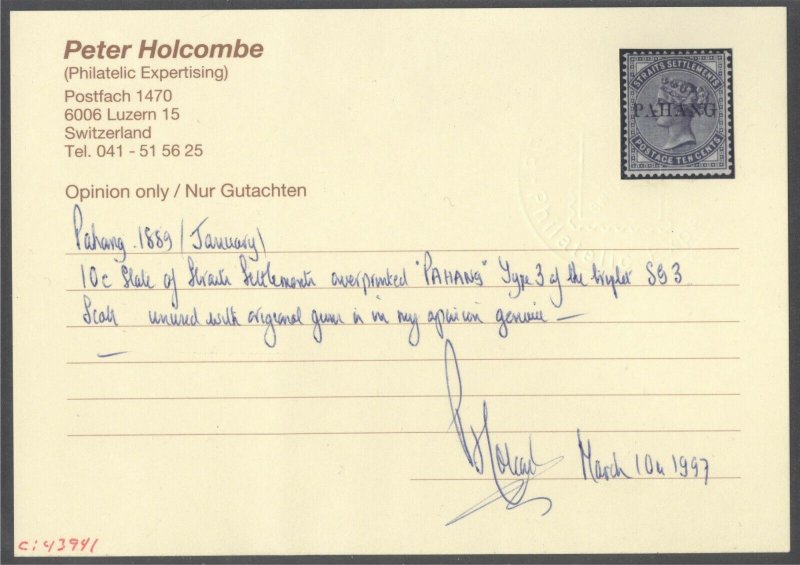 Peter Holcombe
(Philatelic Expertising)
Postfach 1470
6006 Luzern 15
Switzerland
Tel. 041 - 51 56 25
Opinion only / Nur Gutachten
STRAITS SETTLEMENTS
PAHANG
POSTAGE TEN CENTS
Philatelic
Pahang . 1889 (January)
10c Slate of Straits Settlements overprinted "PAHANG" Type 3 of the triplet SG 3
unused with original gum is in my opinion genuine —
—
March 10th 1997
c: 43941